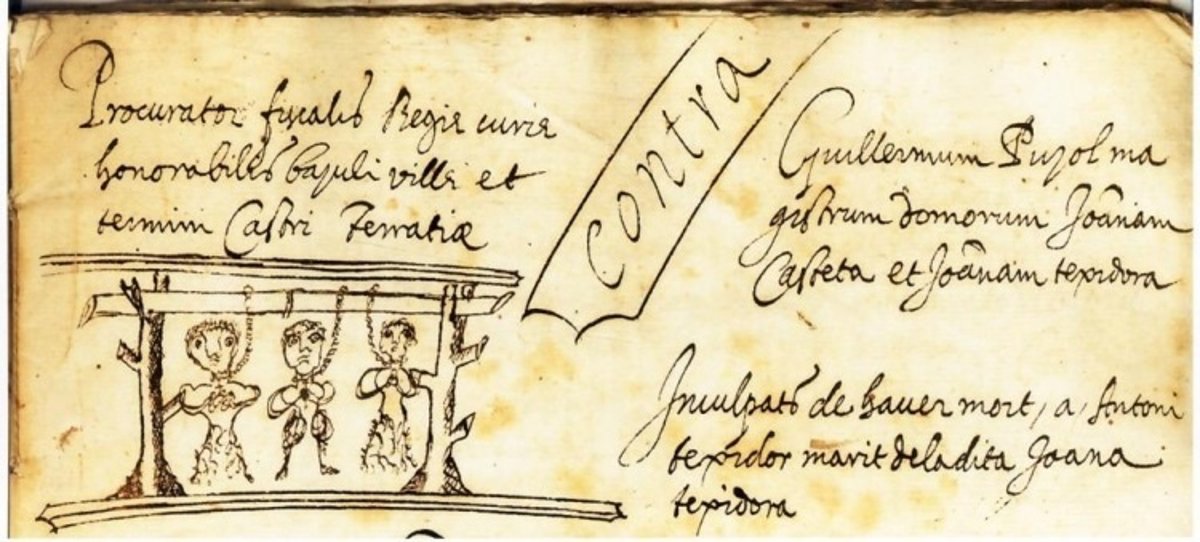 Procurator fiscalis Regie curie
honorabilis bajuli ville et
termini Castri Terratiæ
Contra
Guillermum Pujol ma
gistrum domorum Joãnam
Casteta et Joãnam texidora
Inculpats de haver mort, a, Antoni
texidor marit de la dita Joana
texidora